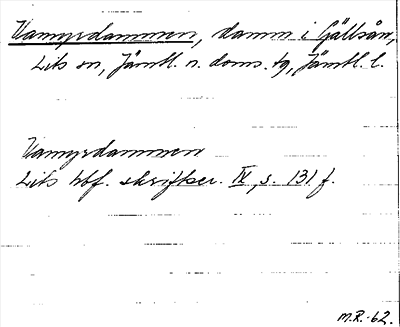 Vamyrdammen, damm i Gällsån,
Lits sn, Jämtl. n. doms. tg, Jämtl. l.
Vamyrdammen
Lits hbf. skriftser. IV, s. 131 f.
M.R.-62.